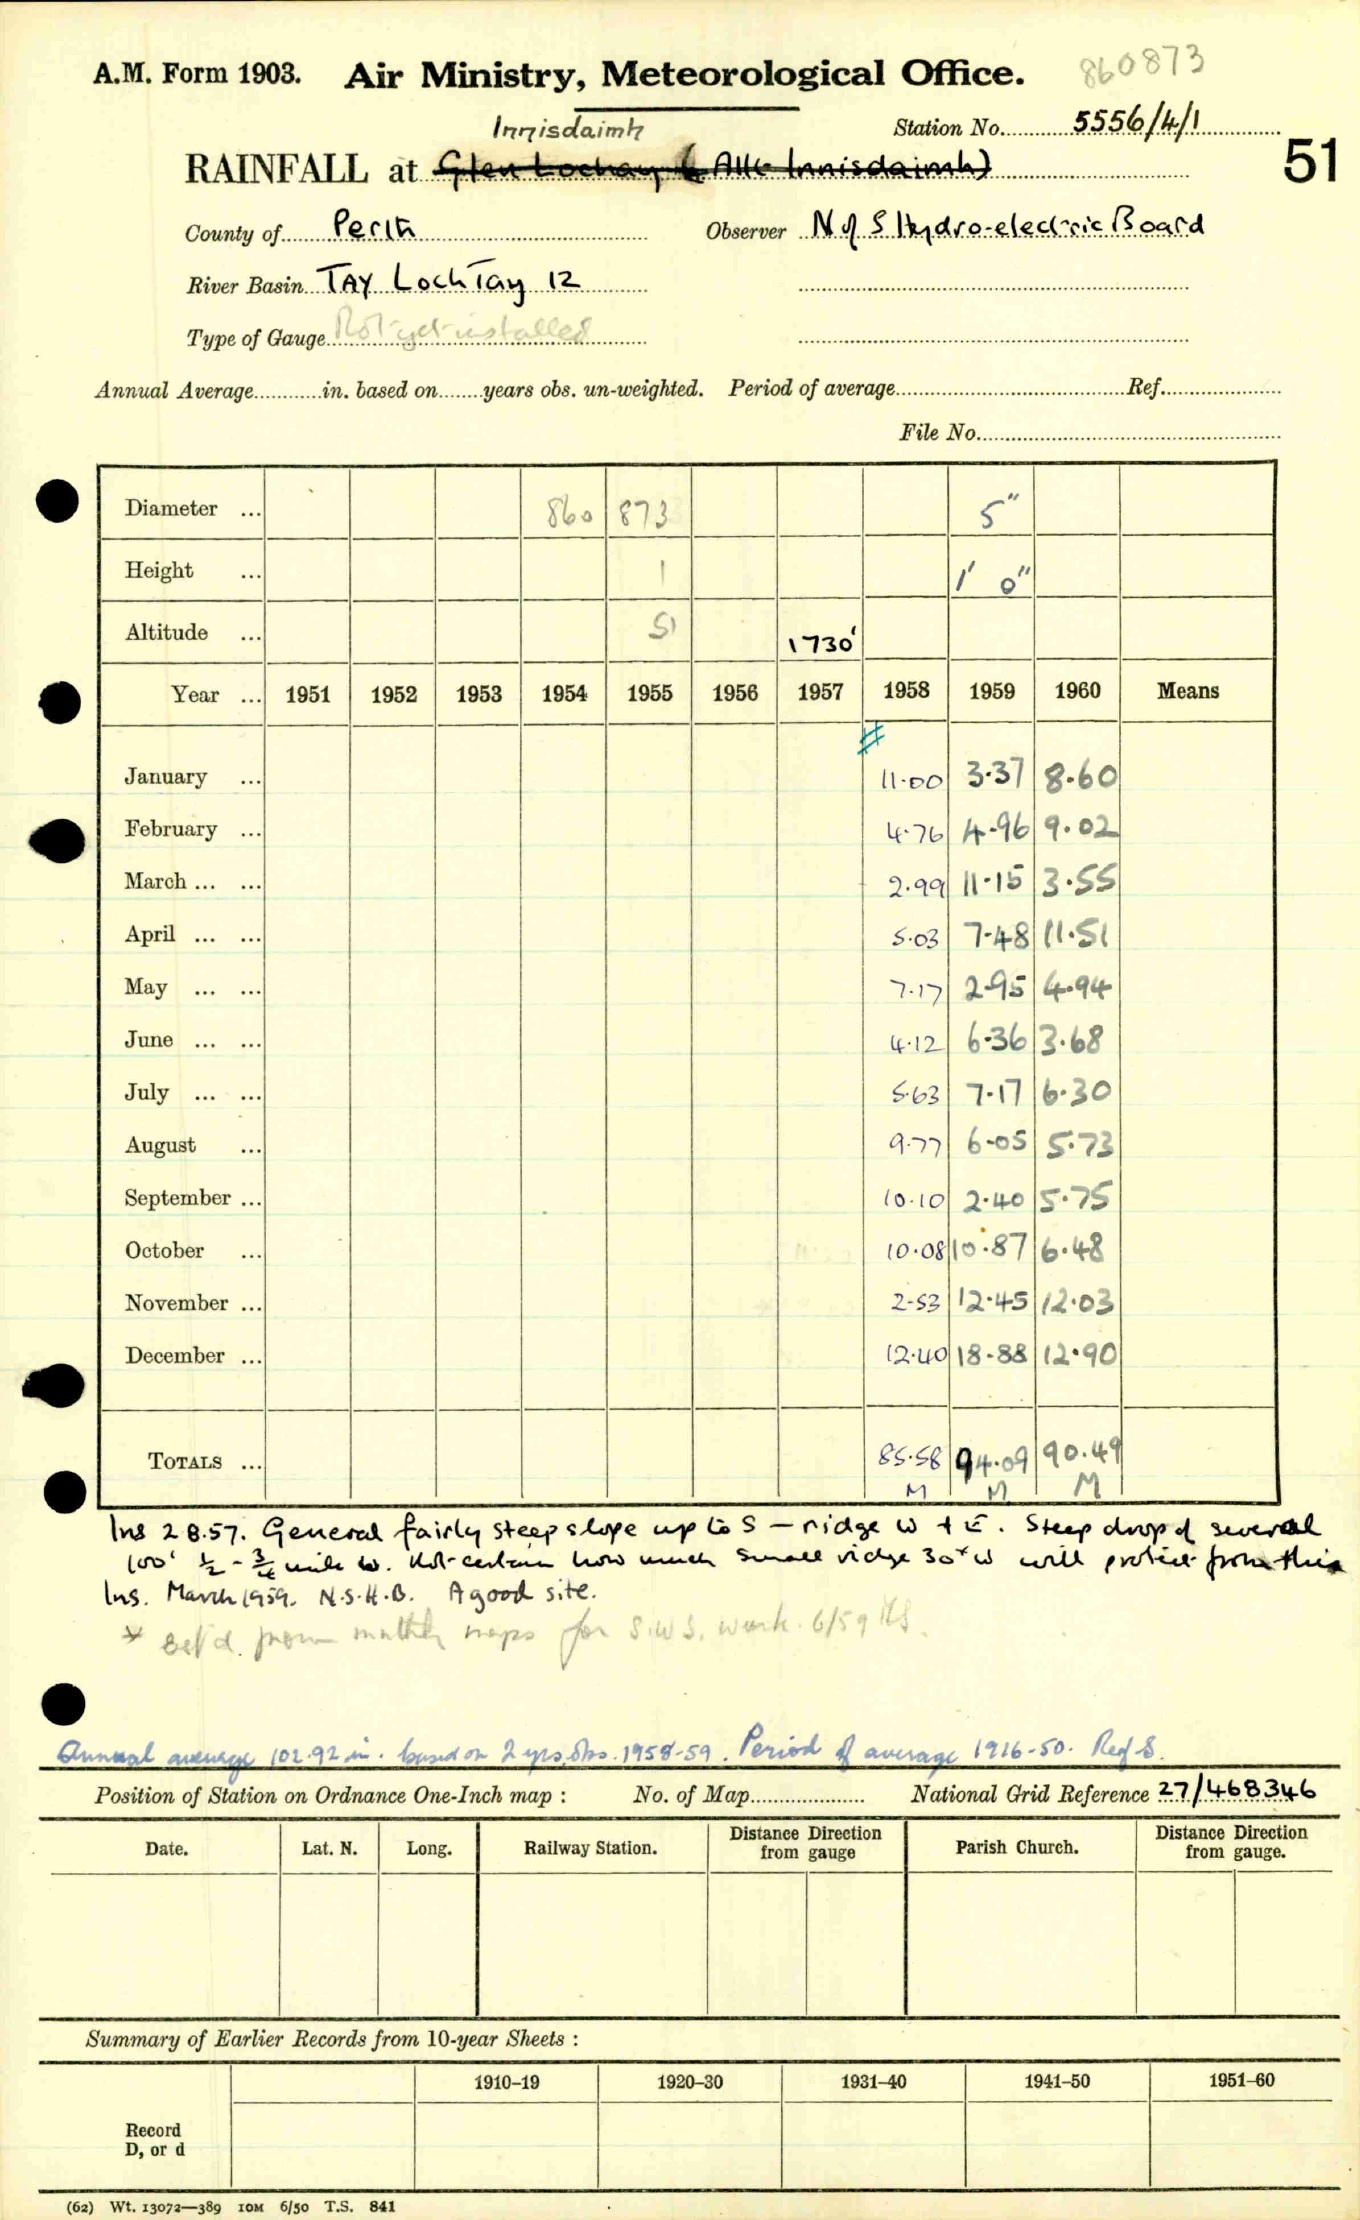 A.M. Form 1903. Air Ministry, Meteorological Office. 860873
Innisdaimh
Station No. 5556/4/1
51
RAINFALL at Glen Lochay (Allt Innisdaimh)
County of Perth Observer N of S Hydro-electric Board
River Basin TAY Loch Tay 12
Type of Gauge Not yet installed
Annual Average in. based on years obs. un-weighted. Period of average Ref.
File No.
Diameter ... 860 873 5"
Height ... 1 1' 0"
Altitude ... 51 1730'
Year ... 1951 1952 1953 1954 1955 1956 1957 1958 1959 1960 Means
January ... 11.00 3.37 8.60
February ... 4.76 4.96 9.02
March ... ... 2.99 11.15 3.55
April ... ... 5.03 7.48 11.51
May ... ... 7.17 2.95 4.94
June ... ... 4.12 6.36 3.68
July ... ... 5.63 7.17 6.30
August ... 9.77 6.05 5.73
September ... 10.10 2.40 5.75
October ... 10.08 10.87 6.48
November ... 2.53 12.45 12.03
December ... 12.40 18.88 12.90
TOTALS ... 85.58 94.09 90.49
M M M
Ins 2.8.57. General fairly steep slope up to S – ridge W + E. Steep drop of several
100' ½ - ¾ mile W. Not certain how much small ridge 30x W will protect from this
Ins. March 1959. N.S.H.B. A good site.
* Est'd. from mthly maps for S.W.S. work. 6/59
Annual average 102.92 in. based on 2 yrs. obs. 1958-59. Period of average 1916-50. Ref S.
Position of Station on Ordnance One-Inch map : No. of Map National Grid Reference 27/468346
Date. Lat. N. Long. Railway Station. Distance Direction from gauge Parish Church. Distance Direction from gauge.
Summary of Earlier Records from 10-year Sheets :
1910–19 1920–30 1931–40 1941–50 1951–60
Record
D, or d
(62) Wt. 13072—389 10M 6/50 T.S. 841